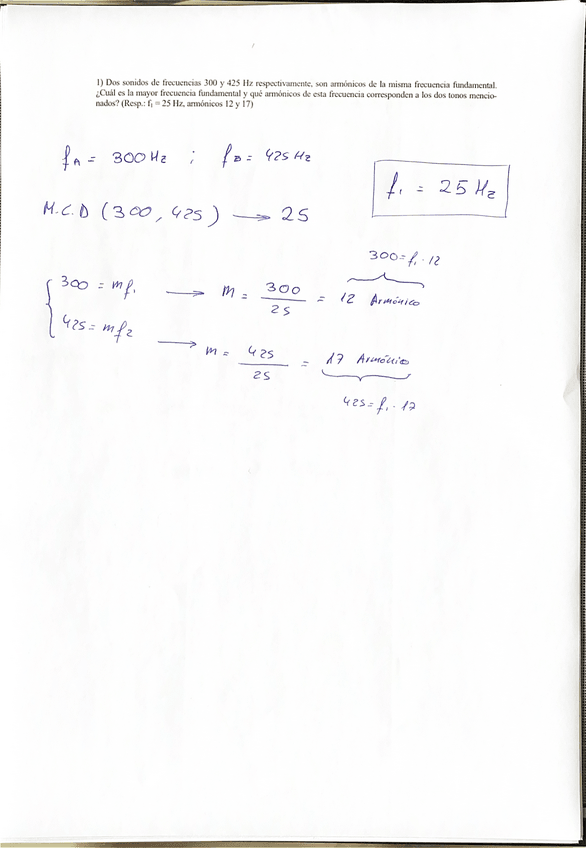 1) Dos sonidos de frecuencias 300 y 425 Hz respectivamente, son armónicos de la misma frecuencia fundamental.
¿Cuál es la mayor frecuencia fundamental y qué armónicos de esta frecuencia corresponden a los dos tonos mencio-
nados? (Resp.: f₁ = 25 Hz, armónicos 12 y 17)
f_A = 300 Hz ; f_B = 425 Hz
f₁ = 25 Hz
M.C.D (300, 425) → 25
300 = f₁ · 12
300 = m f₁ → m = 300/25 = 12 Armónico
425 = m f₂ → m = 425/25 = 17 Armónico
425 = f₁ · 17